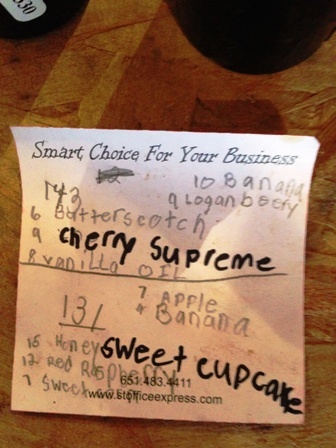 330
Smart Choice For Your Business
10 Banana
143
9 loganberry
6 Butterscotch
9
cherry supreme
8 vanilla OIL
131
7 APPle
4 Banana
15 Honey
sweet cupcake
12 Red Raspberry
651.483.4411
7 Sweet
www.stofficeexpress.com